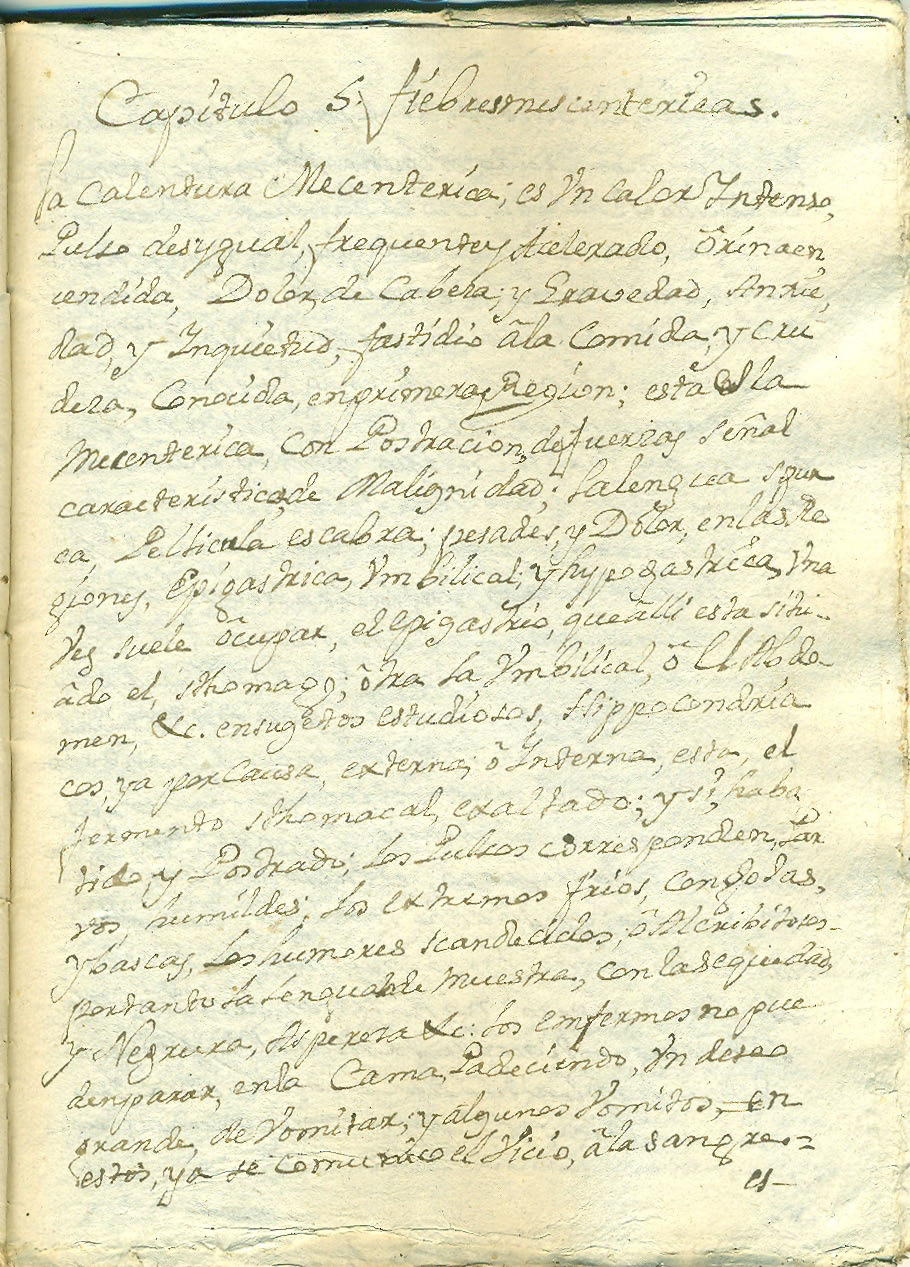 Capitulo 5. fiebres mescentericas.
la Calentura Mecenterica; es Vn calor Yntenso,
Pulso desygual, frequente y Acelerado, ôrina en
cendida, Dolor, de Cabesa; y Gravedad, Anxie,
dad, y Ynquietud, fastidio âla Comida, y cru
desa, Conocida, en primera, Region; esta es la
Mecenterica, Con Postracion, de fuerzas señal
caracteristica, de Malignidad; la lengua squr
ca, Pellicula escabra; pesadés, y Dolor, en las Re
giones, Epigastrica, Vmbilical, y hypogastrica, Vna
Ves suele ôcupar, el epigastrio, que âlli esta situ-
âdo el, sthomago; ôtra la, Vmbilical, ô El Abdo
men, &c. en sugetos estudiosos, Hippocondria
cos, ya por Causa, externa; ô Ynterna, esta, el
fermento sthomacal, exaltado; y si, haba
tido, y Postrado; los Pulsos corresponden, Par
vos, humildes; los extremos frios, congojas,
y bascas, los humores scandecidos, ô
portando la lengua muestra, con la sequedad,
y Negrura, Aspereza &c: los enfermos no pue
den parar, en la Cama, Padeciendo, Vn deseo
grande, de Vomitar; y algunos Vomitos, en
estos, ya se comunico el Vicio, âla sangre.=
es-